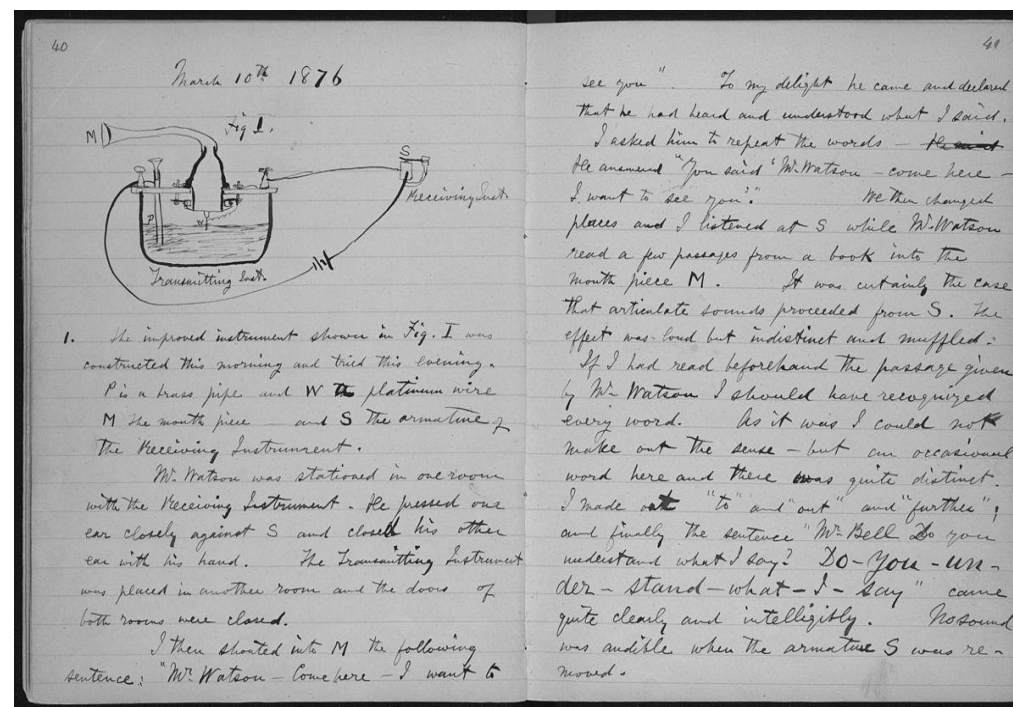 40
March 10th 1876
Fig 1.
M
S
Receiving Inst.
P
W
Transmitting Inst.
1. The improved instrument shown in Fig. I was
constructed this morning and tried this evening.
P is a brass pipe and W the platinum wire
M the mouth piece and S the armature of
the Receiving Instrument.
Mr. Watson was stationed in one room
with the Receiving Instrument. He pressed one
ear closely against S and closed his other
ear with his hand. The Transmitting Instrument
was placed in another room and the doors of
both rooms were closed.
I then shouted into M the following
sentence: "Mr. Watson – Come here – I want to
41
see you". To my delight he came and declared
that he had heard and understood what I said.
I asked him to repeat the words –
He answered "You said 'Mr. Watson – come here –
I want to see you'." We then changed
places and I listened at S while Mr. Watson
read a few passages from a book into the
mouth piece M. It was certainly the case
that articulate sounds proceeded from S. The
effect was loud but indistinct and muffled.
If I had read beforehand the passage given
by Mr. Watson I should have recognized
every word. As it was I could not
make out the sense – but an occasional
word here and there was quite distinct.
I made out "to" and "out" and "further";
and finally the sentence "Mr. Bell Do you
understand what I say? Do – you – un –
der – stand – what – I – say" came
quite clearly and intelligibly. No sound
was audible when the armature S was re-
moved.